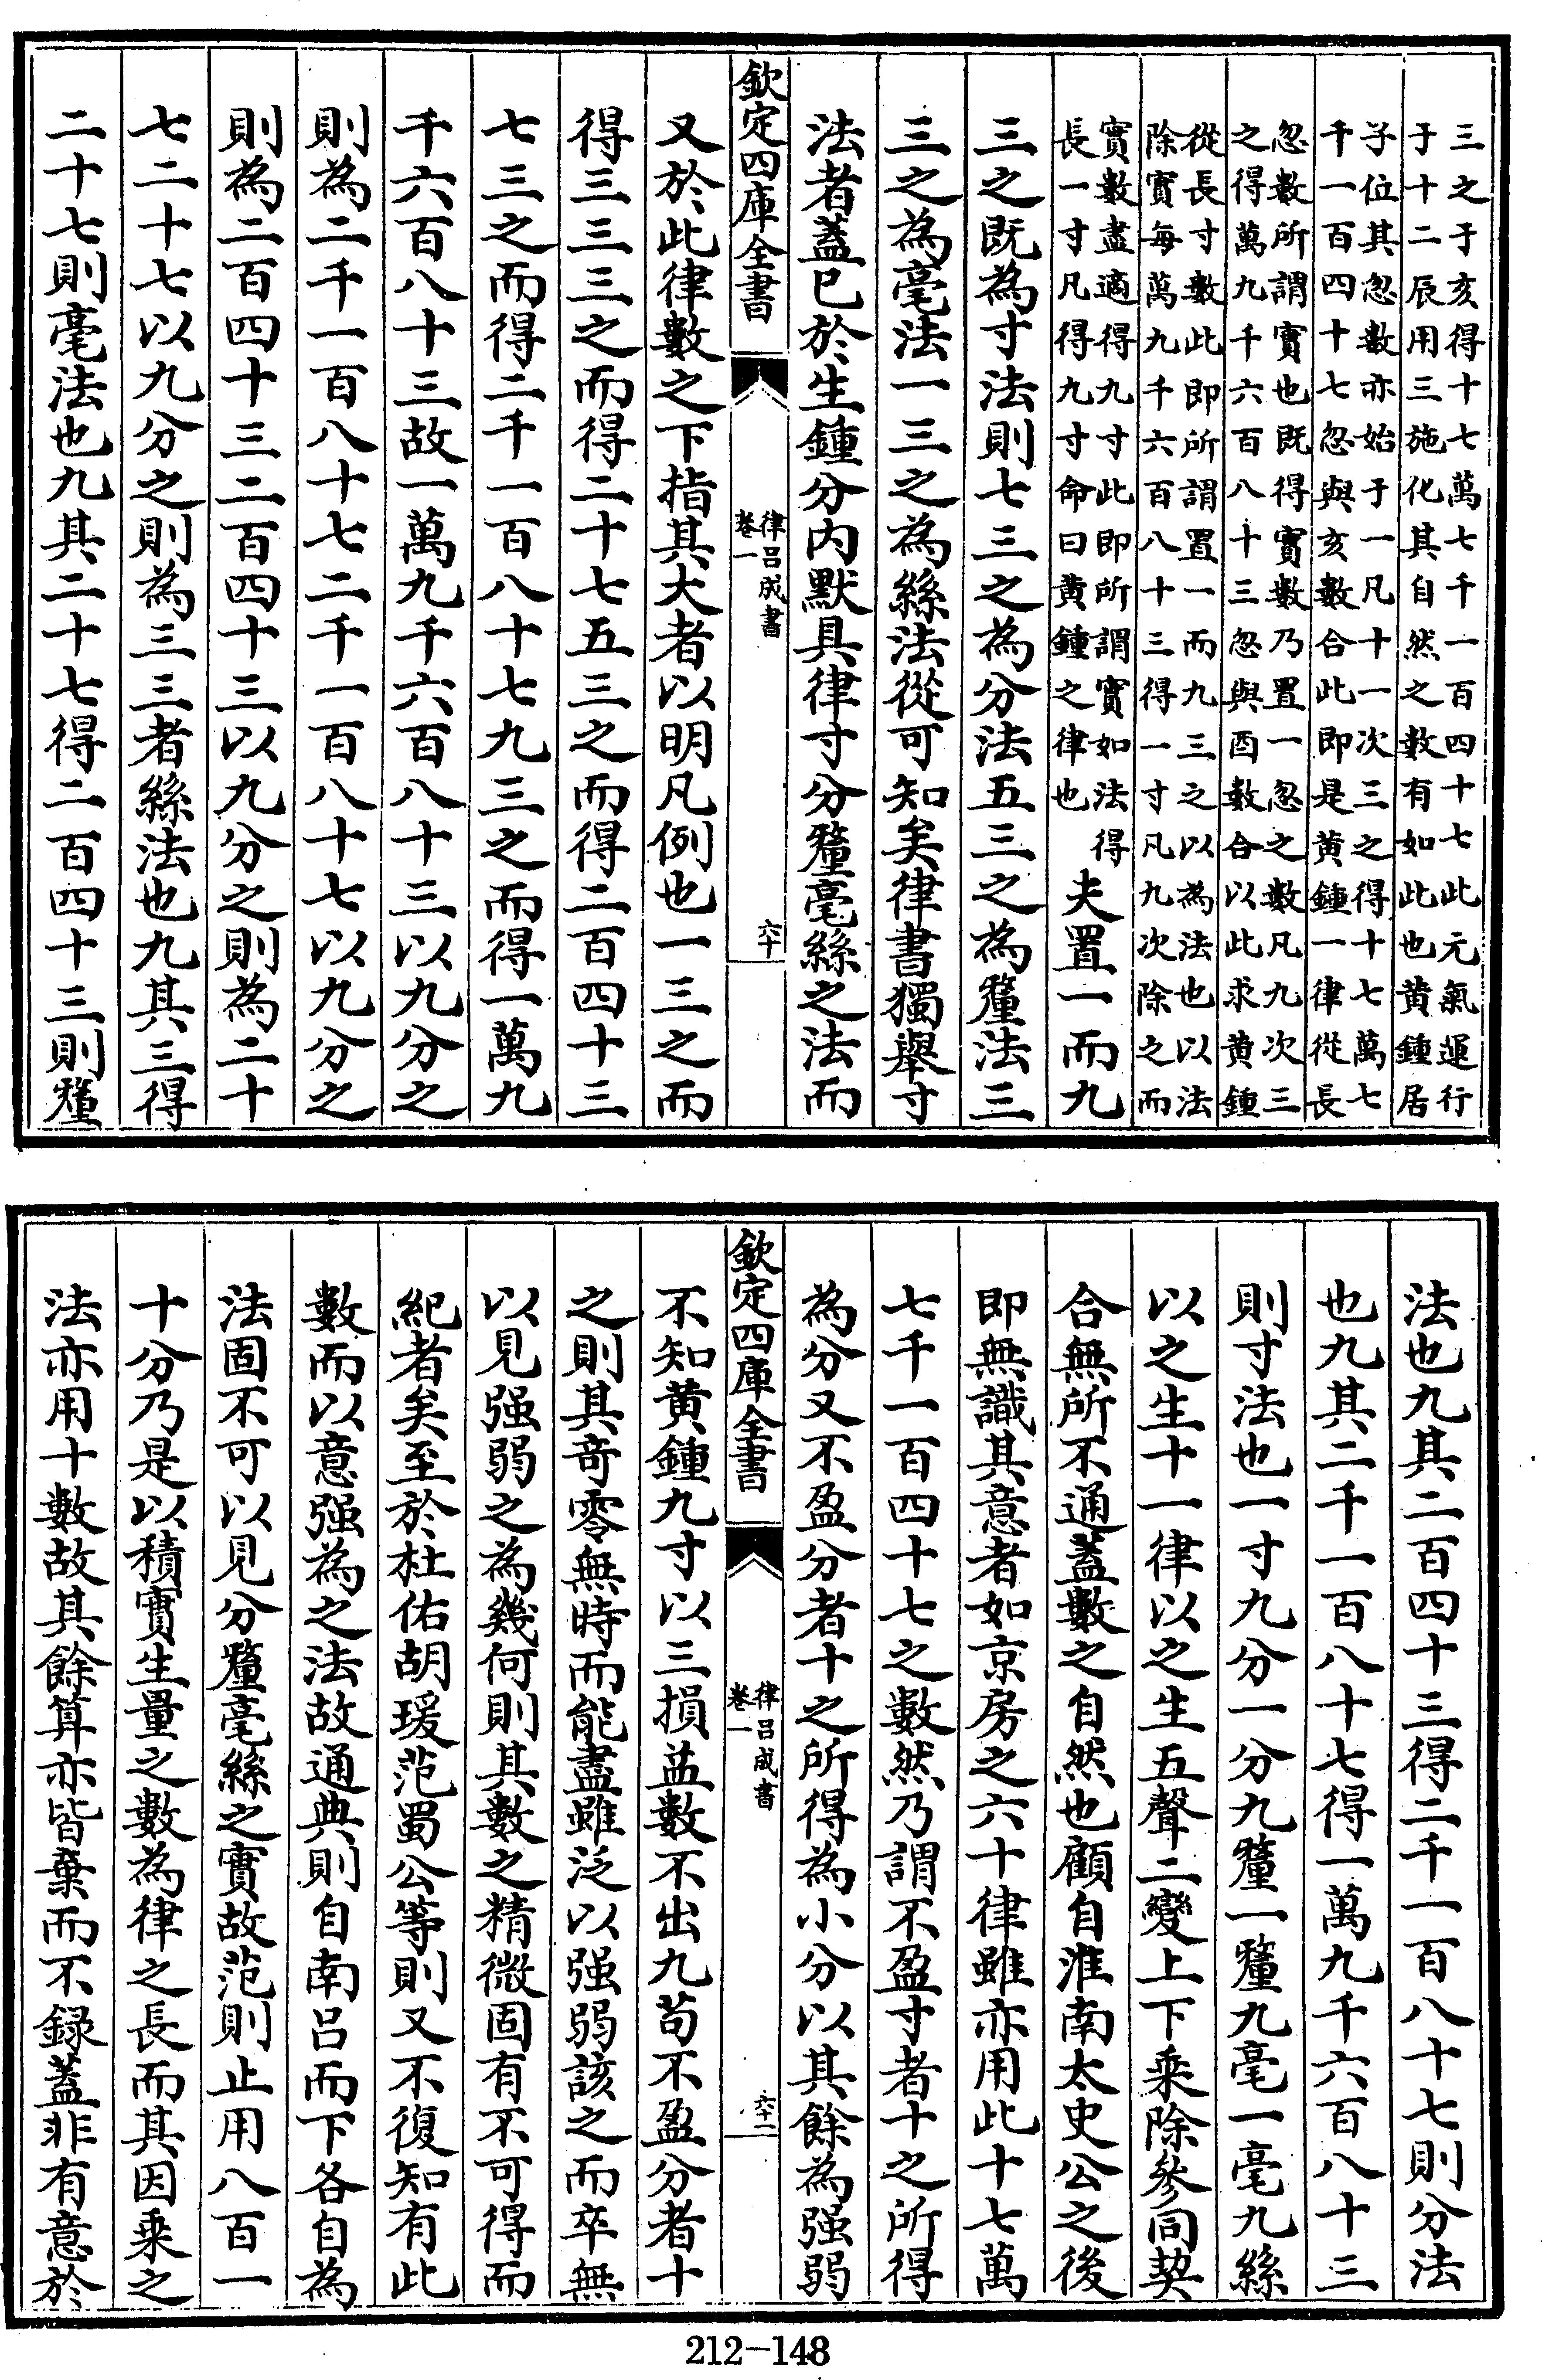 三之于亥得十七萬七千一百四十七此元氣運行
于十二辰用三施化其自然之數有如此也黄鍾居
子位其忽數亦始于一凡十一次三之得十七萬七
千一百四十七忽與亥數合此即是黄鍾一律從長
忽數所謂實也既得實數乃置一忽之數凡九次三
之得萬九千六百八十三忽與酉數合以此求黄鍾
從長寸數此即所謂置一而九三之以為法也以法
除實每萬九千六百八十三得一寸凡九次除之而
實數盡適得九寸此即所謂實如法得
長一寸凡得九寸命曰黄鍾之律也
夫置一而九
三之既為寸法則七三之為分法五三之為釐法三
三之為毫法一三之為絲法從可知矣律書獨舉寸
法者蓋已於生鍾分内默具律寸分釐毫絲之法而
欽定四庫全書
律吕成書
卷一
六十
又於此律數之下指其大者以明凡例也一三之而
得三三三之而得二十七五三之而得二百四十三
七三之而得二千一百八十七九三之而得一萬九
千六百八十三故一萬九千六百八十三以九分之
則為二千一百八十七二千一百八十七以九分之
則為二百四十三二百四十三以九分之則為二十
七二十七以九分之則為三三者絲法也九其三得
二十七則毫法也九其二十七得二百四十三則釐
法也九其二百四十三得二千一百八十七則分法
也九其二千一百八十七得一萬九千六百八十三
則寸法也一寸九分一分九釐一釐九毫一毫九絲
以之生十一律以之生五聲二變上下乘除參同契
合無所不通蓋數之自然也顧自淮南太史公之後
即無識其意者如京房之六十律雖亦用此十七萬
七千一百四十七之數然乃謂不盈寸者十之所得
為分又不盈分者十之所得為小分以其餘為强弱
欽定四庫全書
律吕成書
卷一
六十一
不知黄鍾九寸以三損益數不出九苟不盈分者十
之則其奇零無時而能盡雖泛以强弱該之而卒無
以見强弱之為幾何則其數之精微固有不可得而
紀者矣至於杜佑胡瑗范蜀公等則又不復知有此
數而以意强為之法故通典則自南吕而下各自為
法固不可以見分釐毫絲之實故范則止用八百一
十分乃是以積實生量之數為律之長而其因乘之
法亦用十數故其餘算亦皆棄而不録蓋非有意於